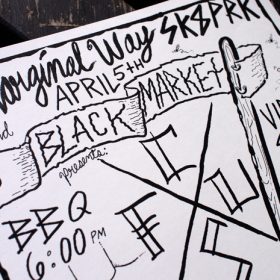 arginal Way SK8PRK
APRIL 5TH
nd
BLACK MARKET
presents:
BBQ
6:00 PM